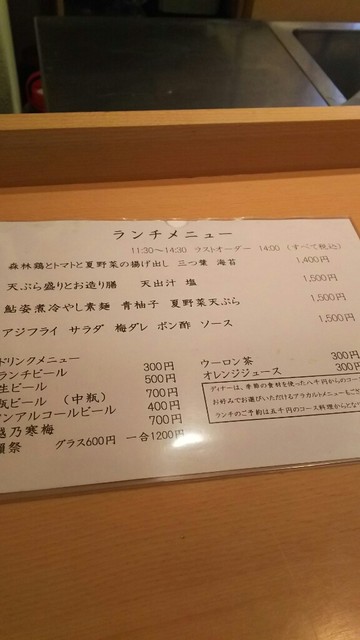 ランチメニュー
11:30～14:30 ラストオーダー 14:00 (すべて税込)
森林鶏とトマトと夏野菜の揚げ出し 三つ葉 海苔 1,400円
天ぷら盛りとお造り膳 天出汁 塩 1,500円
鮎姿煮冷やし素麺 青柚子 夏野菜天ぷら 1,500円
アジフライ サラダ 梅ダレ ポン酢 ソース 1,500円
ドリンクメニュー
ランチビール 300円
生ビール 500円
瓶ビール (中瓶) 700円
ンアルコールビール 400円
越乃寒梅 700円
祭 グラス600円 一合1200円
ウーロン茶 300円
オレンジジュース 300
ディナーは、季節の食材を使った八千円からのコー
お好みでお選びいただけるアラカルトメニューもご
ランチのご予約は五千円のコース料理からとな